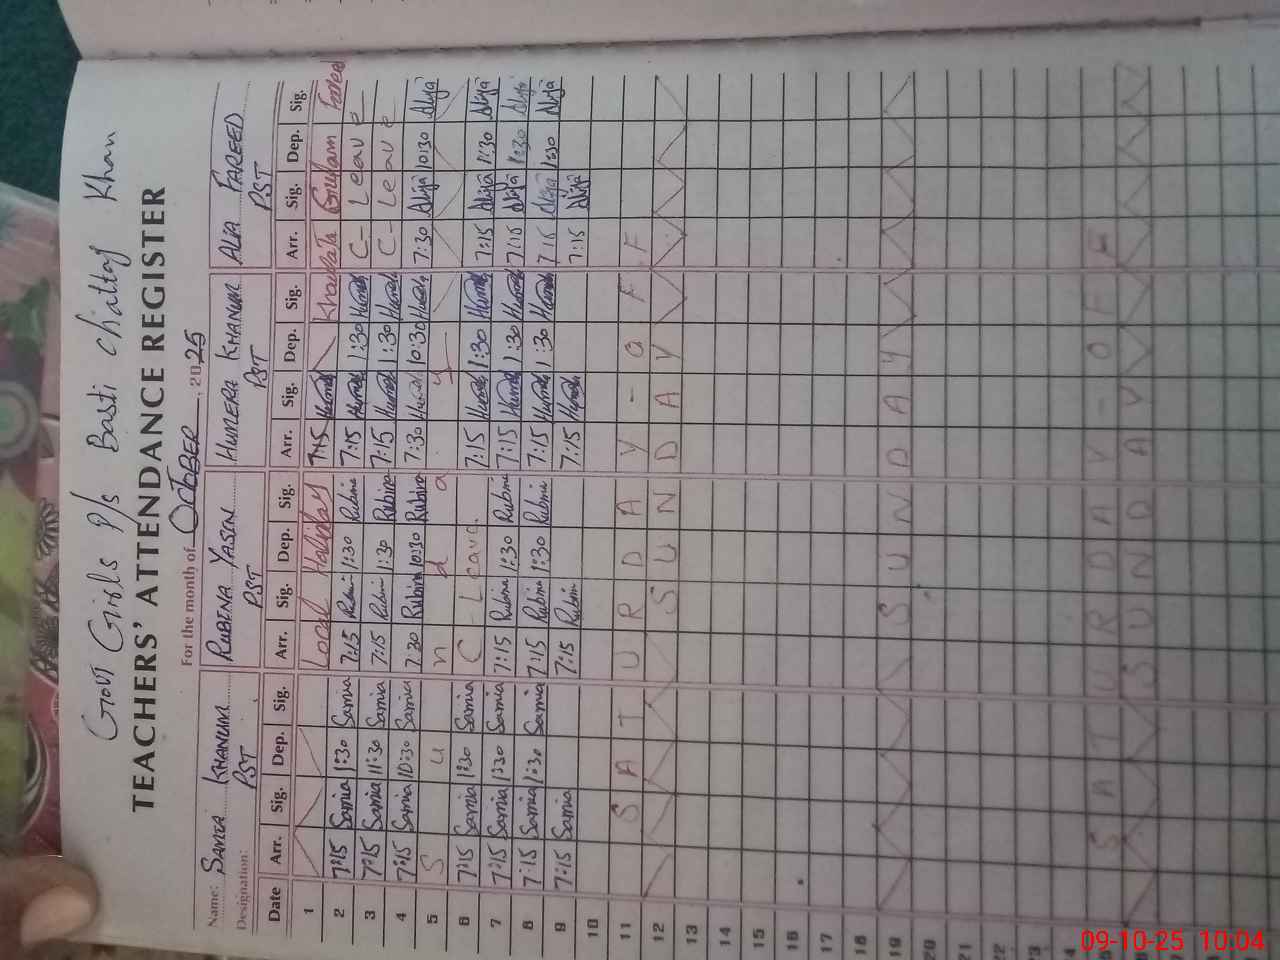 Govt Girls P/s Basti Chaltay Khan
TEACHERS' ATTENDANCE REGISTER
For the month of OCTOBER, 2025
Name: SAMIA KHANUM RUBENA YASIN HUMERA KHANUM ALIA FAREED
Designation: PST PST PST PST
Date Arr. Sig. Dep. Sig. Arr. Sig. Dep. Sig. Arr. Sig. Dep. Sig. Arr. Sig. Dep. Sig.
1 Local Holiday 7:15 Khawaja Ghulam Fareed
2 7:15 Samia 1:30 Samia 7:15 Rubina 1:30 Rubina 7:15 Humera 1:30 Humera C- Leave
3 7:15 Samia 11:30 Samia 7:15 Rubina 1:30 Rubina 7:15 Humera 1:30 Humera C- Leave
4 7:15 Samia 10:30 Samia 7:30 Rubina 10:30 Rubina 7:30 Humera 10:30 Humera 7:30 10:30
5 S u n d a y
6 7:15 Samia 1:30 Samia C - Leave. 7:15 Humera 1:30 Humera 7:15 1:30
7 7:15 Samia 1:30 Samia 7:15 Rubina 1:30 Rubina 7:15 Humera 1:30 Humera 7:15 1:30
8 7:15 Samia 1:30 Samia 7:15 Rubina 1:30 Rubina 7:15 Humera 1:30 Humera 7:15 1:30
9 7:15 Samia 7:15 Rubina 7:15 Humera 7:15
10
11 S A T U R D A Y - O F F
12 S U N D A Y
13
14
15
16
17
18
19 S U N D A Y
20
21
22
23
24
25 S A T U R D A Y - O F F
26 S U N D A Y
09-10-25 10:04